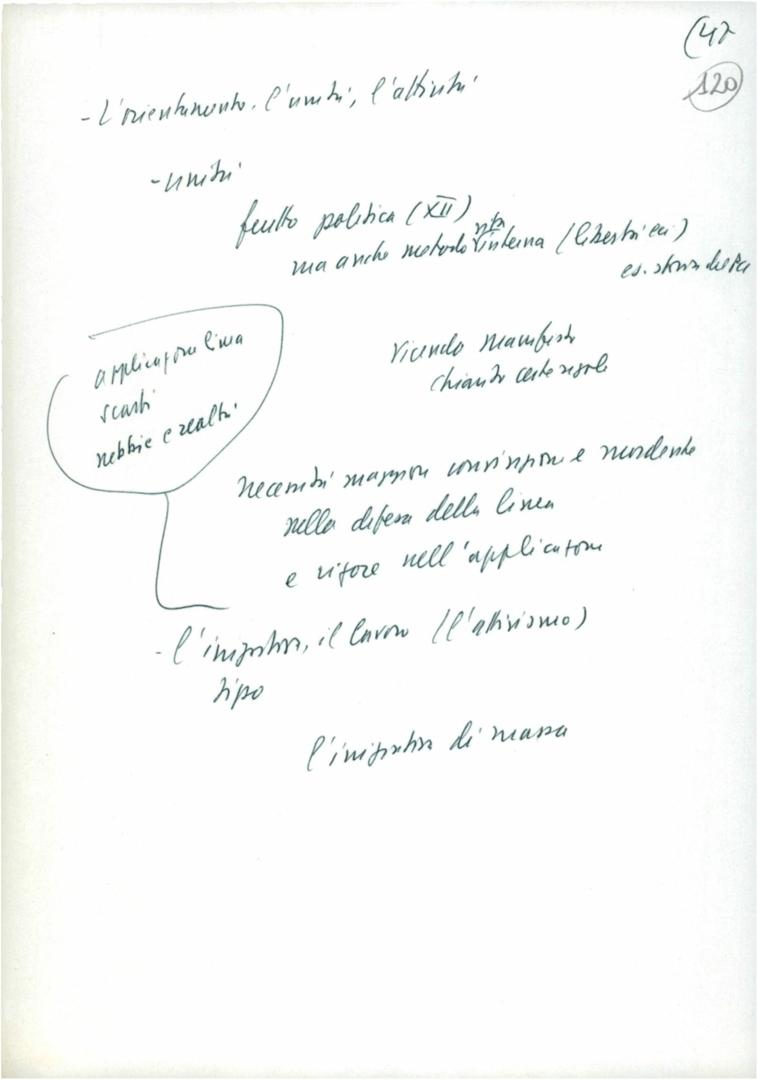 (47
120
- L'orientamento, l'unità, l'attività
- unità
frutto politica (XII)
ma anche metodo vita interna (libertà ecc)
es. storia del Pci
applicazione linea
scarti
nebbie e realtà
vicenda Manifesto
chiarito certe regole
necessità maggior convinzione e mordente
nella difesa della linea
e rigore nell'applicazione
- l'iniziativa, il lavoro (l'attivismo)
tipo
l'iniziativa di massa